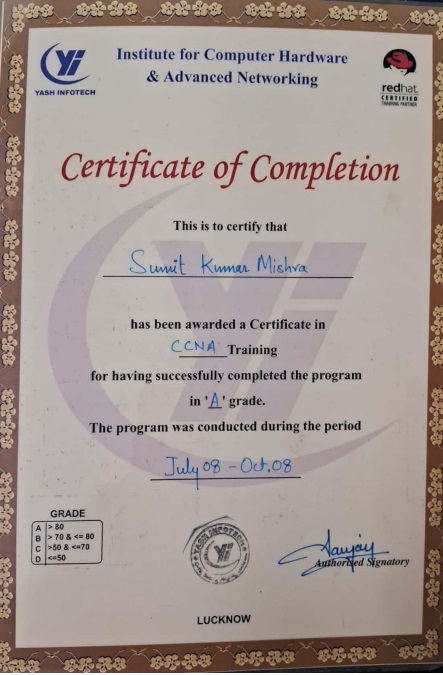 YASH INFOTECH
Institute for Computer Hardware
& Advanced Networking
redhat.
CERTIFIED
TRAINING PARTNER
Certificate of Completion
This is to certify that
Sumit Kumar Mishra
has been awarded a Certificate in
CCNA Training
for having successfully completed the program
in 'A' grade.
The program was conducted during the period
July 08 - Oct. 08
GRADE
A > 80
B > 70 & <= 80
C >50 & <=70
D <=50
YASH INFOTECH
Sanjay
Authorised Signatory
LUCKNOW